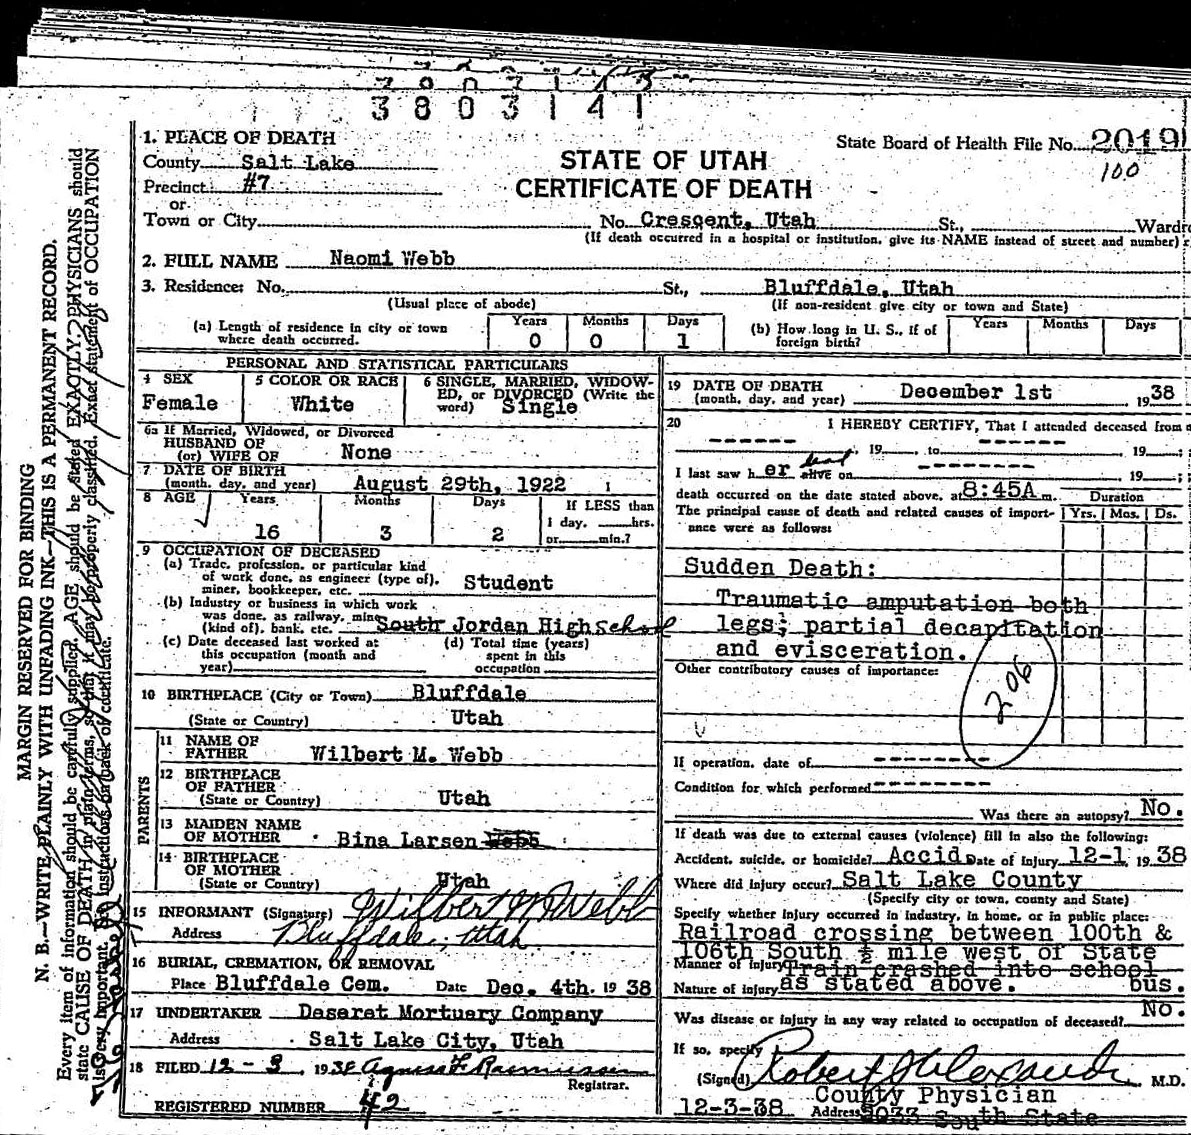 3803141
1. PLACE OF DEATH
State Board of Health File No. 2019
100
County Salt Lake
STATE OF UTAH
Precinct #7
CERTIFICATE OF DEATH
or
Town or City No. Crescent, Utah St., Ward
(If death occurred in a hospital or institution, give its NAME instead of street and number)
2. FULL NAME Naomi Webb
3. Residence: No. St., Bluffdale, Utah
(Usual place of abode) (If non-resident give city or town and State)
(a) Length of residence in city or town where death occurred. Years 0 Months 0 Days 1
(b) How long in U. S., if of foreign birth? Years Months Days
PERSONAL AND STATISTICAL PARTICULARS
4 SEX Female
5 COLOR OR RACE White
6 SINGLE, MARRIED, WIDOWED, or DIVORCED (Write the word) Single
6a If Married, Widowed, or Divorced
HUSBAND OF
(or) WIFE OF None
7 DATE OF BIRTH
(month, day, and year) August 29th, 1922
8 AGE Years Months Days If LESS than
16 3 2 1 day, hrs.
or min.?
9 OCCUPATION OF DECEASED
(a) Trade, profession, or particular kind
of work done, as engineer (type of),
miner, bookkeeper, etc. Student
(b) Industry or business in which work
was done, as railway, mine
(kind of), bank, etc. South Jordan High School
(c) Date deceased last worked at
this occupation (month and
year)
(d) Total time (years)
spent in this
occupation
10 BIRTHPLACE (City or Town) Bluffdale
(State or Country) Utah
PARENTS
11 NAME OF
FATHER Wilbert M. Webb
12 BIRTHPLACE
OF FATHER
(State or Country) Utah
13 MAIDEN NAME
OF MOTHER Bina Larsen Webb
14 BIRTHPLACE
OF MOTHER
(State or Country) Utah
15 INFORMANT (Signature) Wilbert M Webb
Address Bluffdale, Utah
16 BURIAL, CREMATION, OR REMOVAL
Place Bluffdale Cem. Date Dec. 4th. 1938
17 UNDERTAKER Deseret Mortuary Company
Address Salt Lake City, Utah
18 FILED 12-3, 1938 Agness F Rasmussen
Registrar.
REGISTERED NUMBER 42
19 DATE OF DEATH
(month, day, and year) December 1st 1938
20 I HEREBY CERTIFY, That I attended deceased from
, 19 , to , 19 ;
I last saw her dead alive on , 19 ;
death occurred on the date stated above, at 8:45A m.
Duration
The principal cause of death and related causes of importance were as follows: Yrs. Mos. Ds.
Sudden Death:
Traumatic amputation both
legs; partial decapitation
and evisceration.
Other contributory causes of importance:
206
If operation, date of
Condition for which performed
Was there an autopsy? No.
If death was due to external causes (violence) fill in also the following:
Accident, suicide, or homicide? Accid Date of Injury 12-1, 1938
Where did injury occur? Salt Lake County
(Specify city or town, county and State)
Specify whether injury occurred in industry, in home, or in public place:
Railroad crossing between 100th &
106th South ½ mile west of State
Manner of injury Train crashed into school
Nature of injury as stated above. bus.
Was disease or injury in any way related to occupation of deceased? No.
If so, specify
(Signed) Robert J Alexander M.D.
County Physician
12-3-38 Address 3033 South State
MARGIN RESERVED FOR BINDING
N. B.—WRITE PLAINLY WITH UNFADING INK—THIS IS A PERMANENT RECORD.
Every item of information should be carefully supplied. AGE should be stated EXACTLY. PHYSICIANS should
state CAUSE OF DEATH in plain terms, so that it may be properly classified. Exact statement of OCCUPATION
is very important. See instructions on back of certificate.